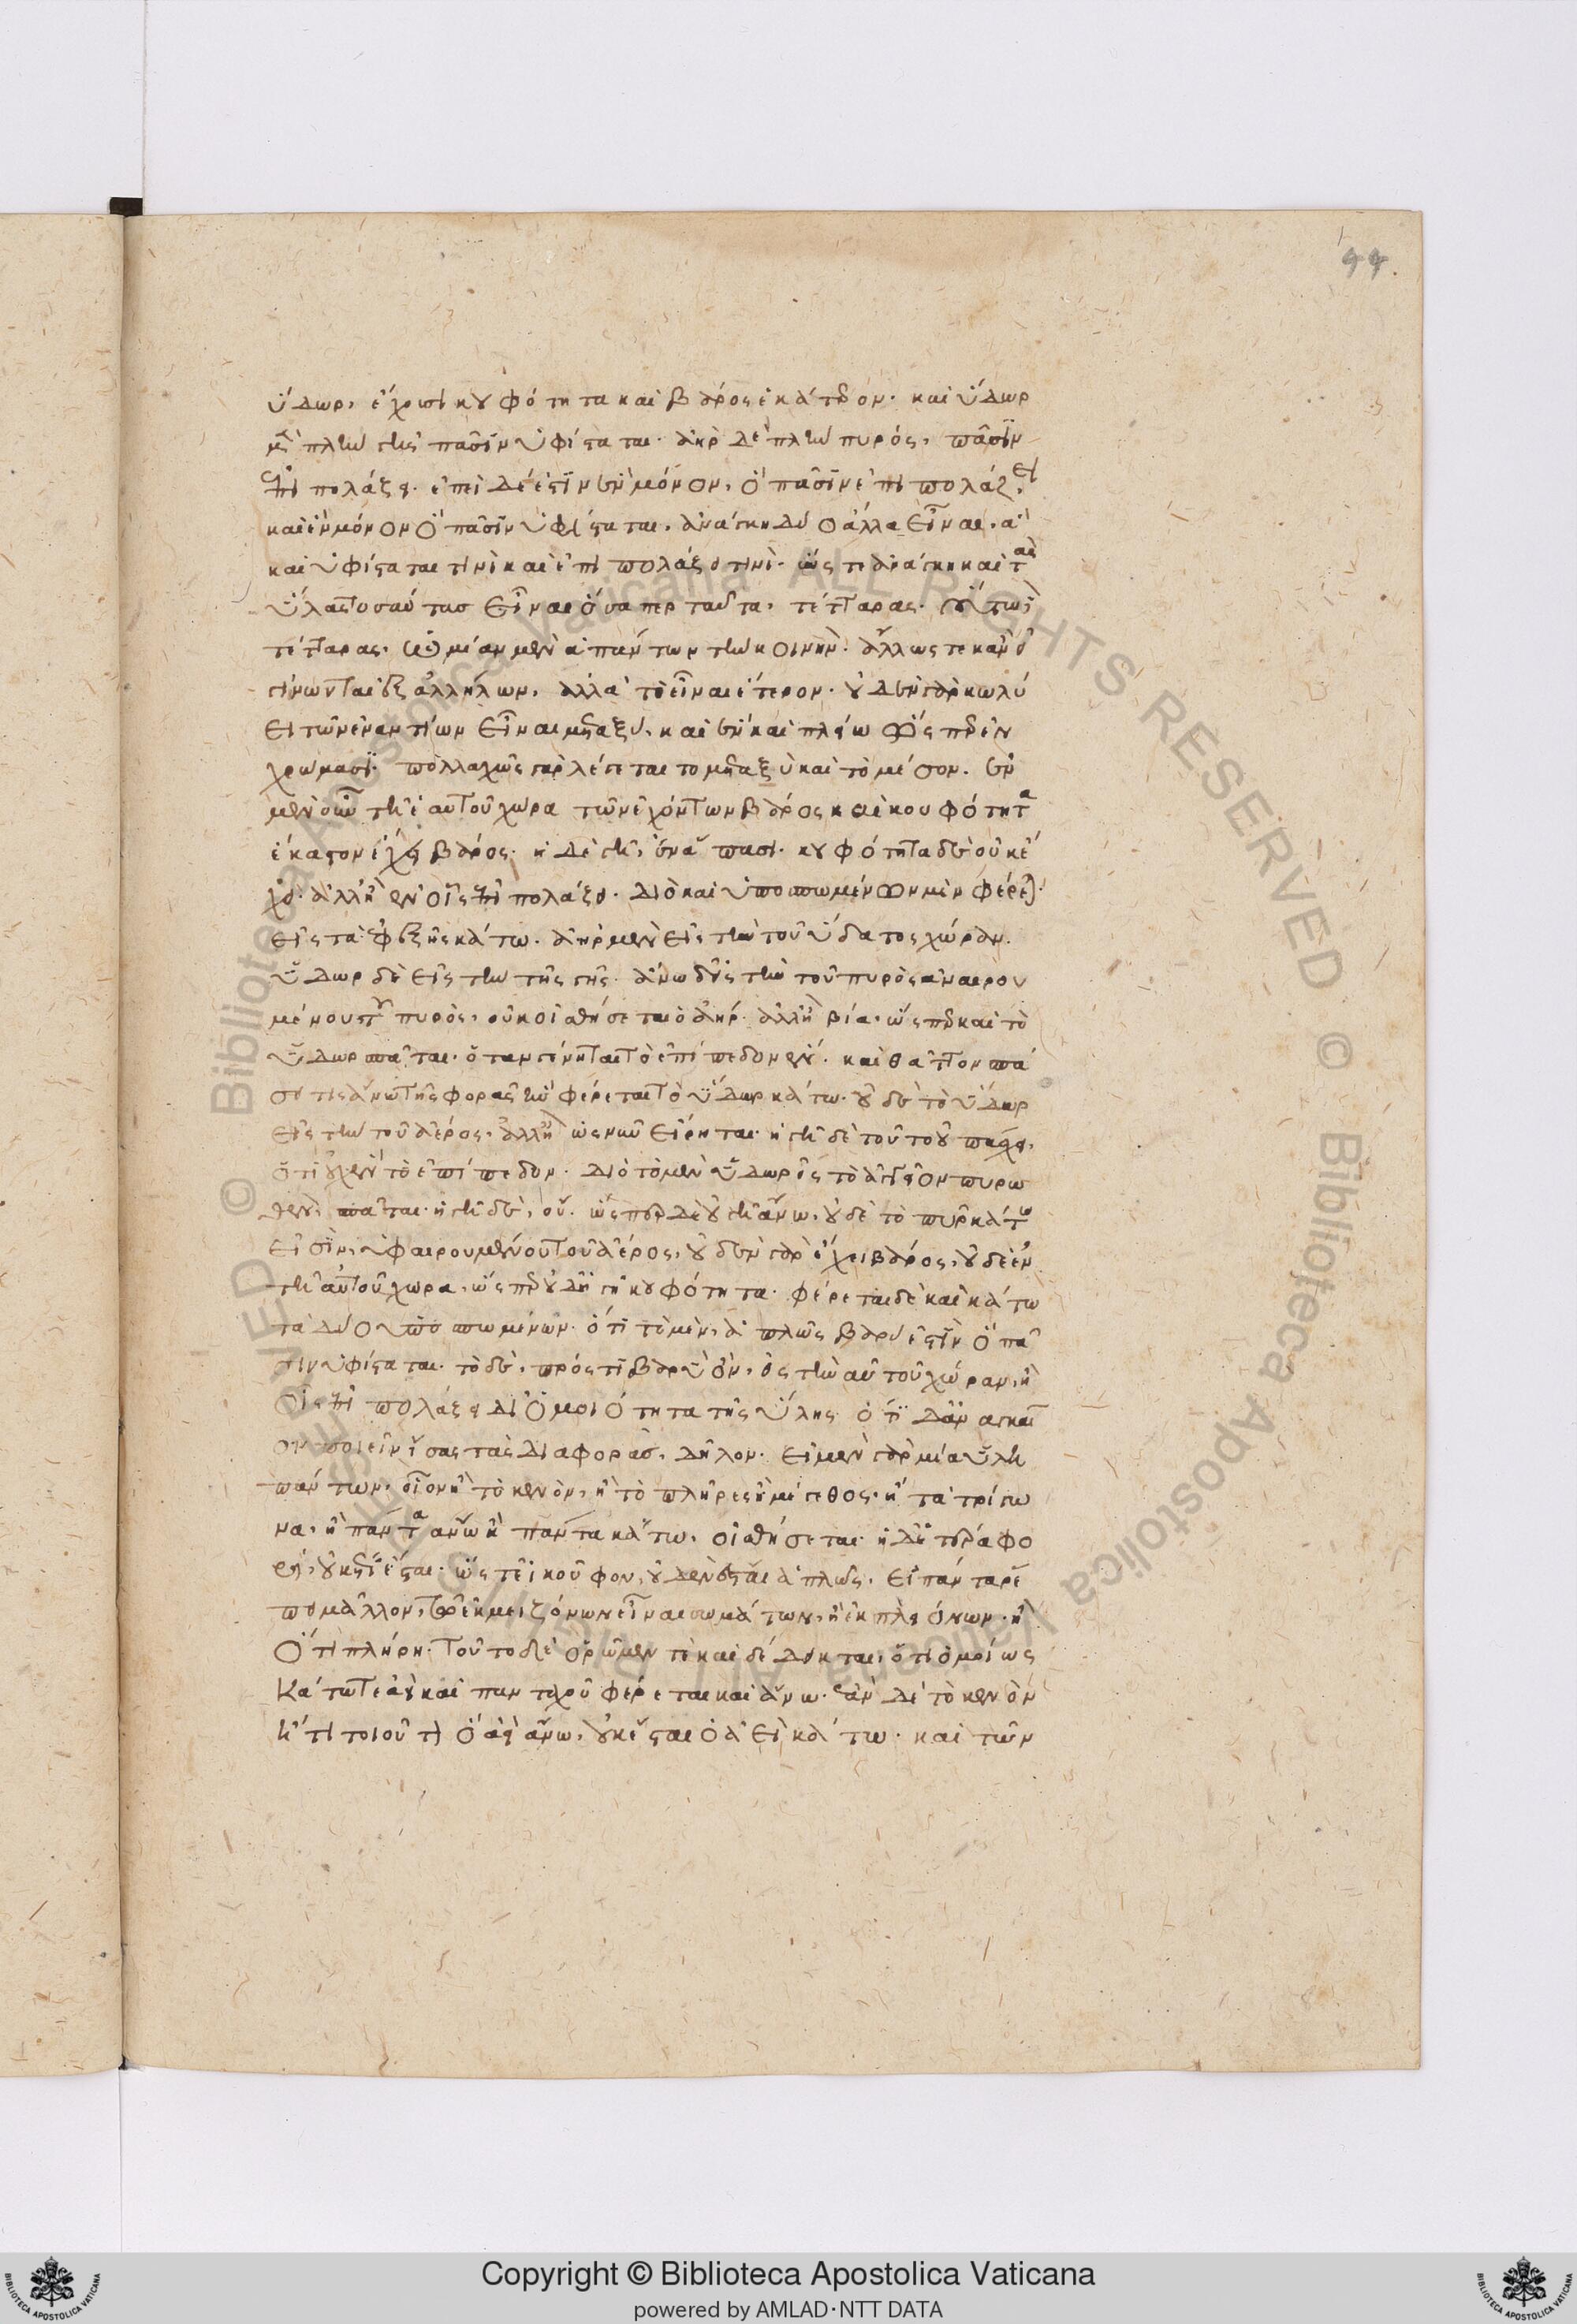 99.
ὕδωρ, ἔχουσι κουφότητα καὶ βάρος ἑκάτερον. καὶ ὕδωρ
μὲν πλὴν γῆς πᾶσιν ὑφίσταται. ἀὴρ δὲ πλὴν πυρός, πᾶσιν
ἐπιπολάζει. ἐπεὶ δέ ἐστιν ἓν μόνον, ὃ πᾶσιν ἐπιπολάζει
καὶ ἓν μόνον ὃ πᾶσιν ὑφίσταται. ἀνάγκη δύο ἄλλα εἶναι, ἃ
καὶ ὑφίσταται τινὶ καὶ ἐπιπολάζει τινί. ὥστε ἀνάγκη καὶ τὰς
ὕλας τοσαύτας εἶναι ὅσαπερ ταῦτα, τέτταρας. οὕτω δὲ
τέτταρας, ὡς μίαν μὲν ἁπάντων τὴν κοινήν. ἄλλως τε καὶ εἰ
γίνωνται ἐξ ἀλλήλων, ἀλλὰ τὸ εἶναι ἕτερον. οὐδὲν γὰρ κωλύ
ει τῶν ἐναντίων εἶναι μεταξύ, καὶ ἓν καὶ πλείω ὥσπερ ἐν
χρώμασι. πολλαχῶς γὰρ λέγεται τὸ μεταξὺ καὶ τὸ μέσον. ἐν
μὲν οὖν τῇ ἑαυτοῦ χώρα τῶν ἐχόντων βάρος καὶ κουφότητα
ἕκαστον ἔχει βάρος. ἡ δὲ γῆ, ἐν ἅπασι. κουφότητα δὲ οὐκ ἔ
χει. ἀλλ' ἢ ἐν οἷς ἐπιπολάζει. διὸ καὶ ὑποσπωμένων μὲν φέρεται
εἰς τὸ ἐφεξῆς κάτω. ἀὴρ μὲν εἰς τὴν τοῦ ὕδατος χώραν.
ὕδωρ δὲ εἰς τὴν τῆς γῆς. ἄνω δ' εἰς τὴν τοῦ πυρὸς ἀναιρου
μένου τοῦ πυρός, οὐκ οἰσθήσεται ὁ ἀήρ. ἀλλ' ἢ βία. ὥσπερ καὶ τὸ
ὕδωρ σπᾶται. ὅταν γένηται τὸ ἐπίπεδον ἕν. καὶ θᾶττον σπά
σῃ τις ἄνω τῆς φορᾶς ἣν φέρεται τὸ ὕδωρ κάτω. οὐδὲ τὸ ὕδωρ
εἰς τὴν τοῦ ἀέρος, ἀλλ' ἢ ὡς νῦν εἴρηται. ἡ γῆ δὲ τοῦτο οὐ πάσχει,
ὅτι οὐχ ἓν τὸ ἐπίπεδον. διὸ τὸ μὲν ὕδωρ εἰς τὸ ἀγγεῖον πυρω
θὲν, σπᾶται. ἡ γῆ δὲ, οὔ. ὥσπερ δὲ οὐ γῆ ἄνω, οὐδὲ τὸ πῦρ κάτω
εἶσιν, ὑφαιρουμένου τοῦ ἀέρος, οὐδὲν γὰρ ἔχει βάρος, οὐδὲ ἐν
τῇ αὑτοῦ χώρα, ὥσπερ οὐδ' ἡ γῆ κουφότητα. φέρεται δὲ καὶ κάτω
τὰ δύο ὑποσπωμένων. ὅτι τὸ μὲν, ἁπλῶς βαρύ ἐστιν ὃ πᾶ
σιν ὑφίσταται. τὸ δὲ, πρός τι βαρὺ ὄν, εἰς τὴν αὑτοῦ χώραν, ἢ
οἷς ἐπιπολάζει δι' ὁμοιότητα τῆς ὕλης ὅτι δ' ἀναγκαῖ
ον ποιεῖν ἴσας τὰς διαφορὰς, δῆλον. εἰ μὲν γὰρ μία ὕλη
πάντων, οἷον ἢ τὸ κενὸν, ἢ τὸ πλῆρες ἢ μέγεθος. ἢ τὰ τρίγω
να, ἢ πάντα ἄνω ἢ πάντα κάτω, οἰσθήσεται. ἡ δὲ ἑτέρα φο
ρὰ, οὐκέτι ἔσται. ὥστε ἢ κοῦφον, οὐδὲν ἔσται ἁπλῶς. εἰ πάντα ῥέ
πει μᾶλλον, τῷ ἐκ μειζόνων εἶναι σωμάτων, ἢ ἐκ πλειόνων. ἢ
ὅτι πλήρη. τοῦτο δὲ ὁρῶμέν τε καὶ δέδεικται, ὅτι ὁμοίως
κάτω τε ἀεὶ καὶ πανταχοῦ φέρεται καὶ ἄνω. ἐὰν δὲ τὸ κενὸν
ἤ τι τοιοῦτι ὃ ἀεὶ ἄνω, οὐκ ἔσται ὃ ἀεὶ κάτω. καὶ τῶν
Copyright © Biblioteca Apostolica Vaticana
powered by AMLAD·NTT DATA